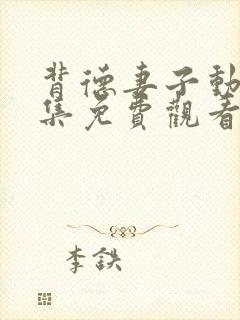 背德妻子動
集免費觀看
李鉄